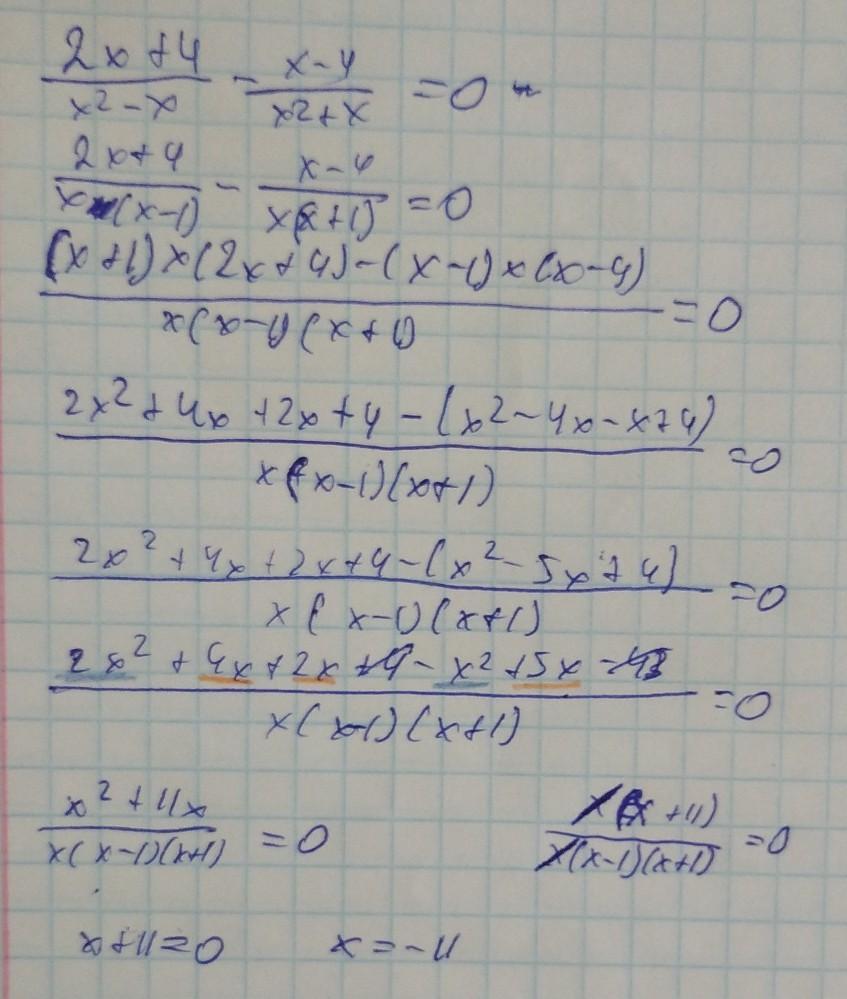 (2x+4)/(x²-x) - (x-4)/(x²+x) = 0
(2x+4)/(x(x-1)) - (x-4)/(x(x+1)) = 0
((x+1)×(2x+4)-(x-1)×(x-4))/(x(x-1)(x+1)) = 0
(2x²+4x+2x+4-(x²-4x-x+4))/(x(x-1)(x+1)) = 0
(2x²+4x+2x+4-(x²-5x+4))/(x(x-1)(x+1)) = 0
(2x²+4x+2x+4-x²+5x-4)/(x(x-1)(x+1)) = 0
(x²+11x)/(x(x-1)(x+1)) = 0 (x(x+11))/(x(x-1)(x+1)) = 0
x+11=0 x=-11